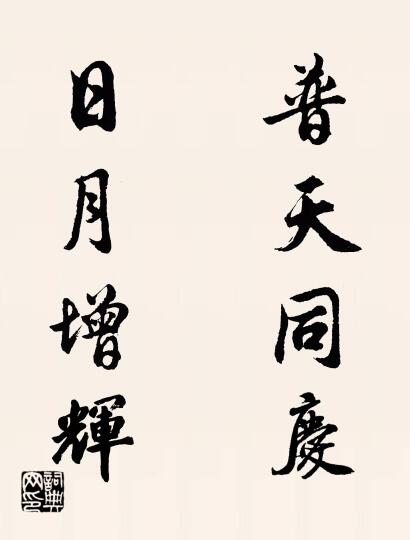 普天同慶
日月增輝
詞典網印